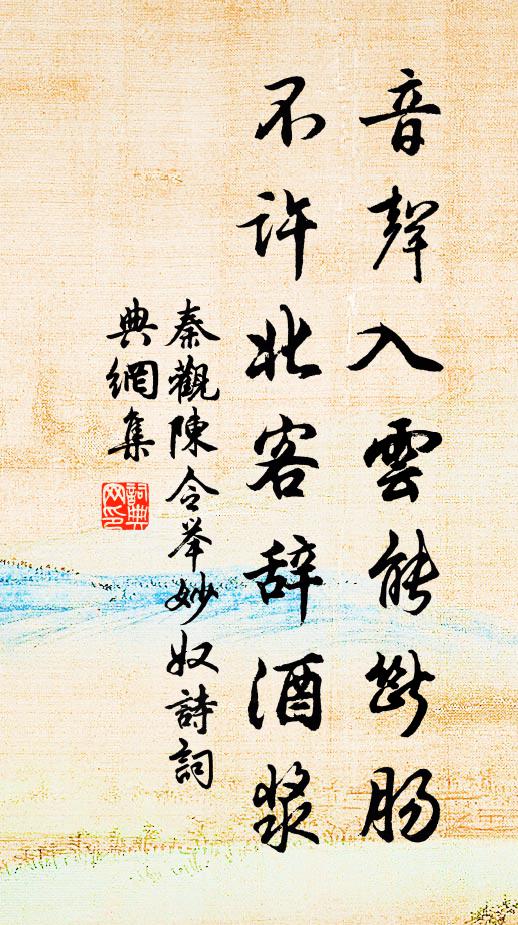 音聲入雲能斷肠
不许北客辞酒漿
秦觀陳令举妙奴詩詞
典網集
詞典网印